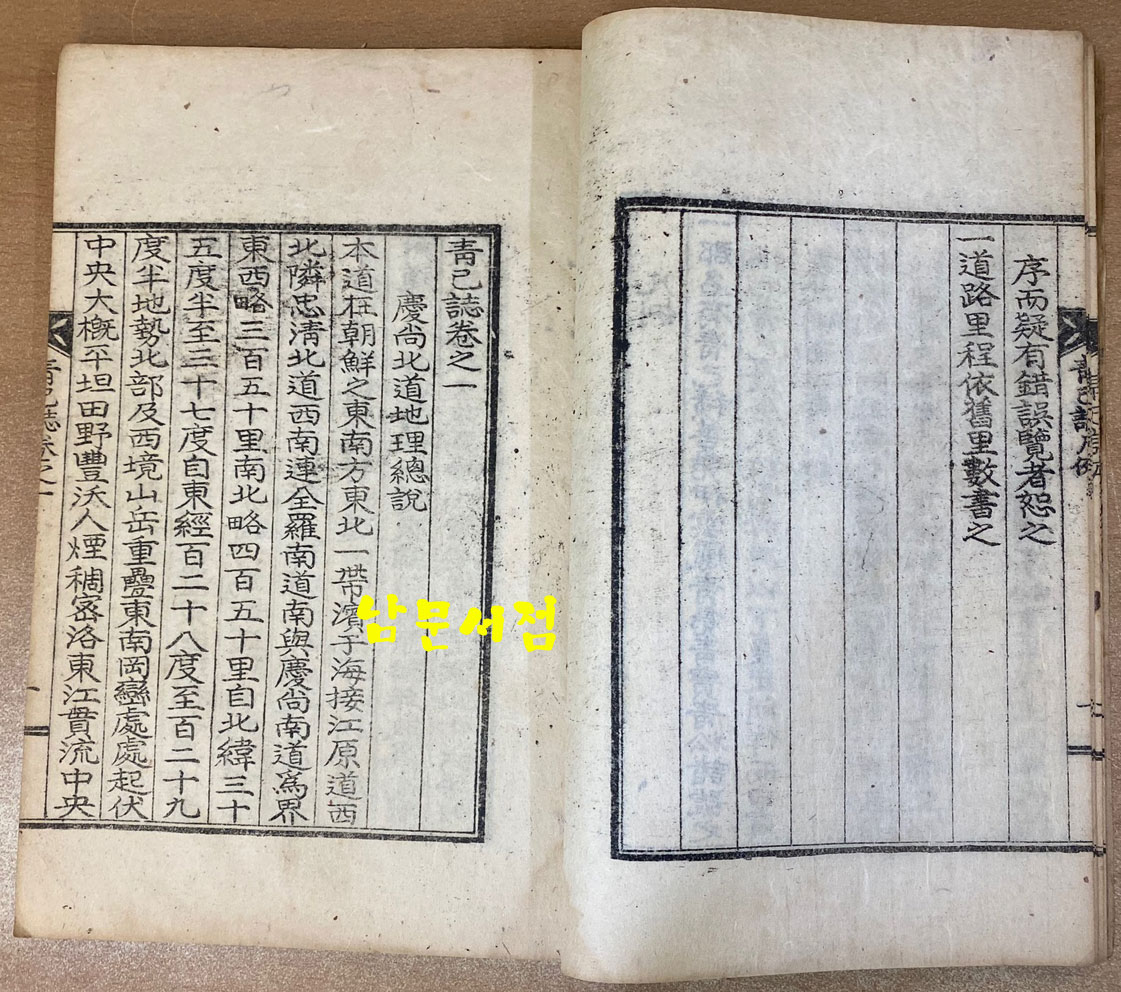 序而疑有錯誤覽者恕之
一道路里程依舊里數書之
靑己誌卷之一
慶尙北道地理總說
本道在朝鮮之東南方東北一帶濱于海接江原道西
北隣忠淸北道西南連全羅南道南與慶尙南道爲界
東西略三百五十里南北略四百五十里自北緯三十
五度半至三十七度自東經百二十八度至百二十九
度半地勢北部及西境山岳重疊東南岡巒處處起伏
中央大槪平坦田野豐沃人煙稠密洛東江貫流中央
靑己誌卷之一
一
남문서점